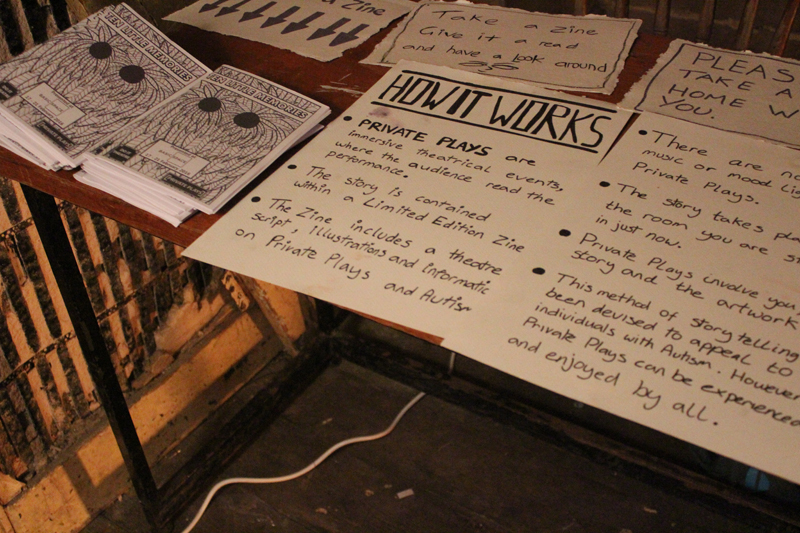 a Zine
Take a Zine
Give it a read
and have a look around
PLEAS
TAKE A
HOME W
YOU.
TEN LITTLE MEMORIES
TEN LITTLE MEMORIES
HOW IT WORKS
• PRIVATE PLAYS are
immersive theatrical events,
where the audience read the
performance.
• The story is contained
within a Limited Edition Zine
• The Zine includes a theatre
script, Illustrations and informatic
on Private Plays and Autism
• There are no
music or mood lig
Private Plays.
• The story takes pla
the room you are s
in just now.
• Private Plays involve you
story and the artwork
• This method of storytelling
been devised to appeal to
individuals with Autism. However
Private Plays can be experienced
and enjoyed by all.